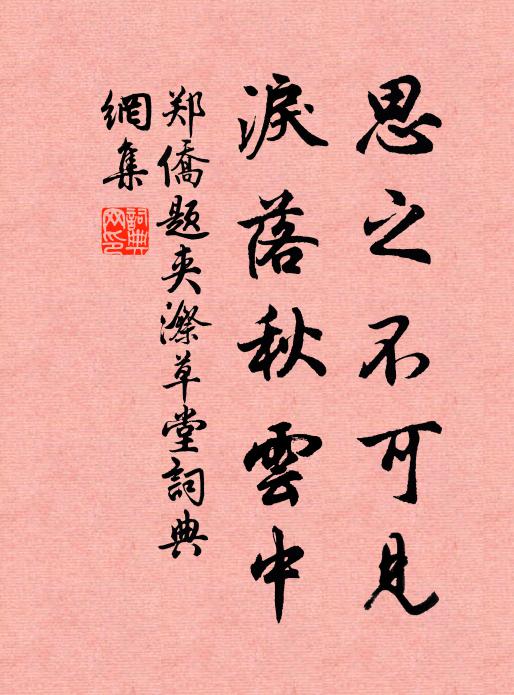 思之不可見
淚落秋雲中
郑僑题夹漈草堂詞典
網集
詞典
网印